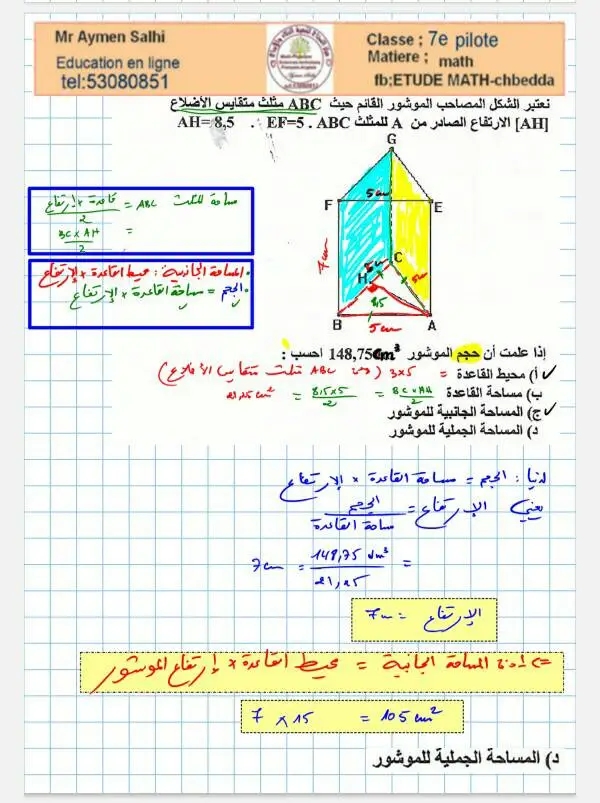 Mr Aymen Salhi
Education en ligne
tel:53080851
Classe ; 7e pilote
Matiere ; math
fb:ETUDE MATH-chbedda
نعتبر الشكل المصاحب الموشور القائم حيث ABC مثلث متقايس الأضلاع
[AH] الارتفاع الصادر من A للمثلث ABC . EF=5 . AH= 8,5
مساحة المثلث ABC = قاعدة × إرتفاع / 2
= BC × AH / 2
• المساحة الجانبية : محيط القاعدة × الإرتفاع
• الحجم = مساحة القاعدة × الإرتفاع
G
5cm
F
E
7cm
C
5cm
H
5cm
8,5
B
A
5cm
إذا علمت أن حجم الموشور 148,75cm³ احسب :
✓ أ) محيط القاعدة = 3×5 (ABC مثلث متقايس الأضلاع)
ب) مساحة القاعدة = BC × AH / 2 = 8,5×5 / 2 = 21,25 cm²
✓ ج) المساحة الجانبية للموشور
د) المساحة الجملية للموشور
لدينا : الحجم = مساحة القاعدة × الإرتفاع
يعني الإرتفاع = الحجم / مساحة القاعدة
= 148,75 / 21,25 = 7cm
الإرتفاع = 7cm
المساحة الجانبية = محيط القاعدة × إرتفاع الموشور
7 × 15 = 105 cm²
د) المساحة الجملية للموشور